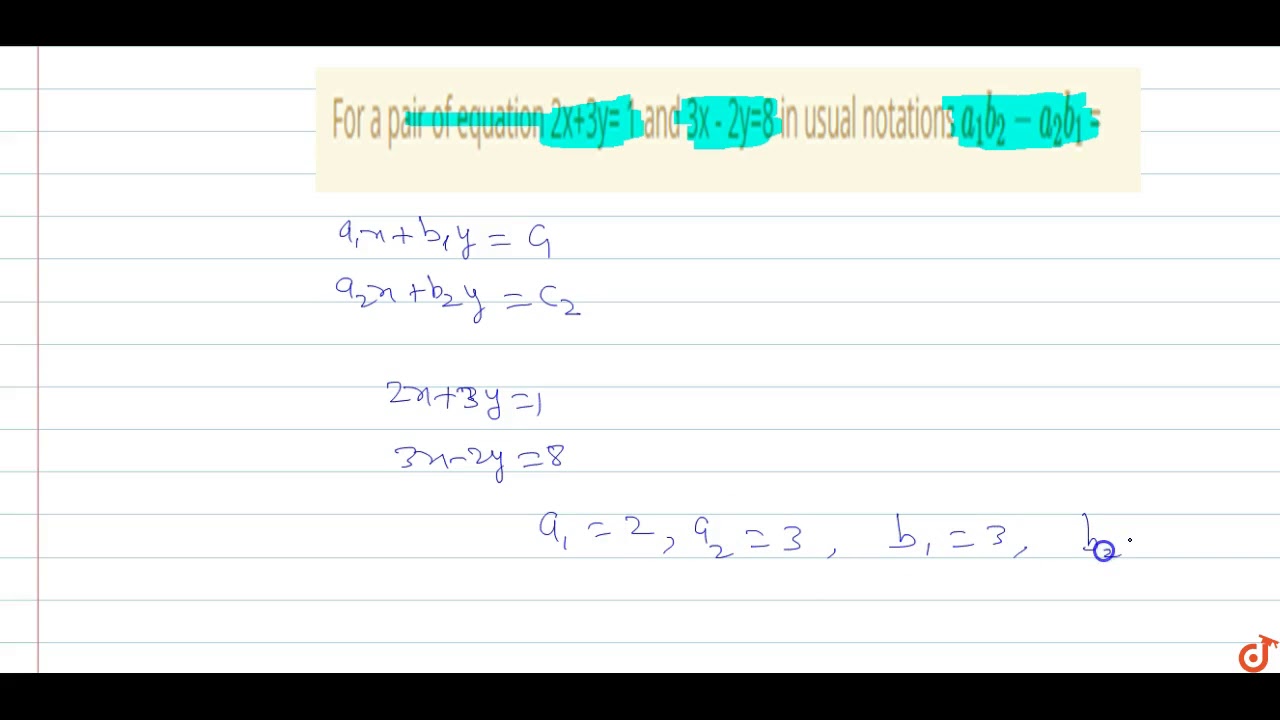 For a pair of equation 2x+3y= 1 and 3x - 2y=8 in usual notations a₁b₂ − a₂b₁ =
a₁x + b₁y = C₁
a₂x + b₂y = C₂
2x+3y=1
3x-2y=8
a₁ = 2, a₂ = 3, b₁ = 3, b₂